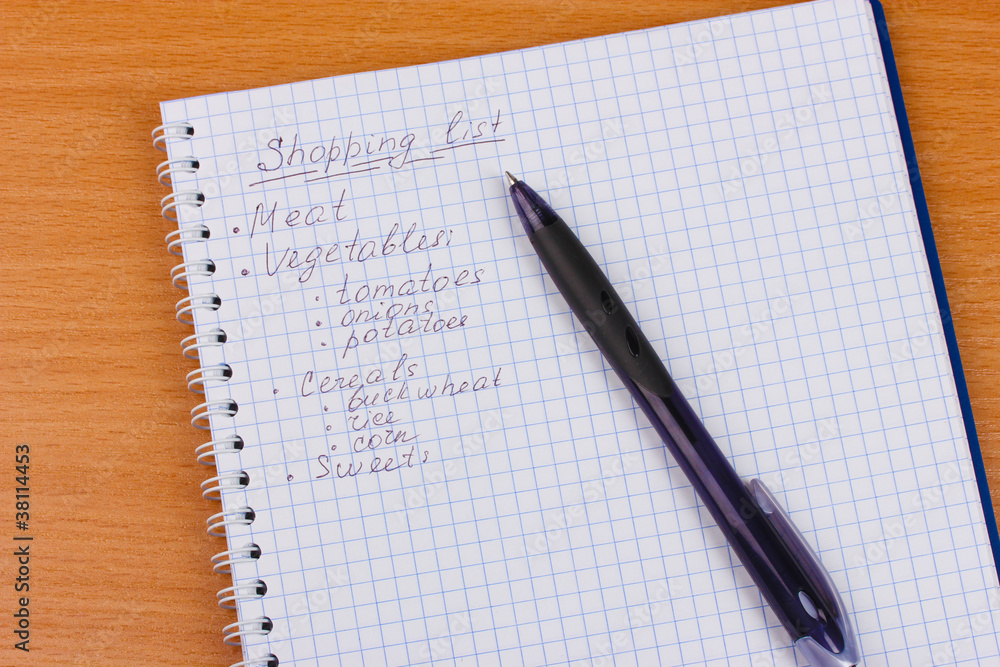 Shopping list
• Meat
• Vegetables:
• tomatoes
• onions
• potatoes
• Cereals
• buckwheat
• rice
• corn
• Sweets
Adobe Stock | #38114453